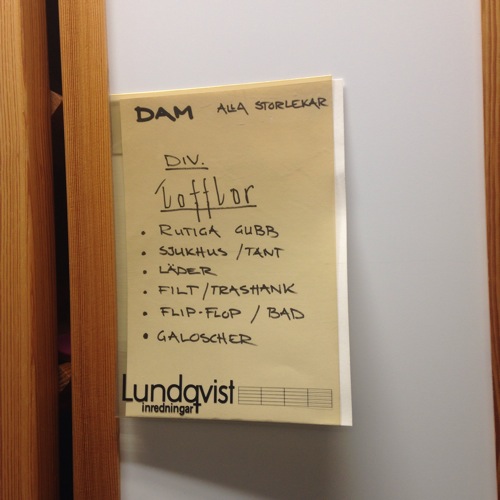 DAM ALLA STORLEKAR
DIV.
Tofflor
• RUTIGA GUBB
• SJUKHUS / TANT
• LÄDER
• FILT / TRASHANK
• FLIP-FLOP / BAD
• GALOSCHER
Lundqvist
inredningar